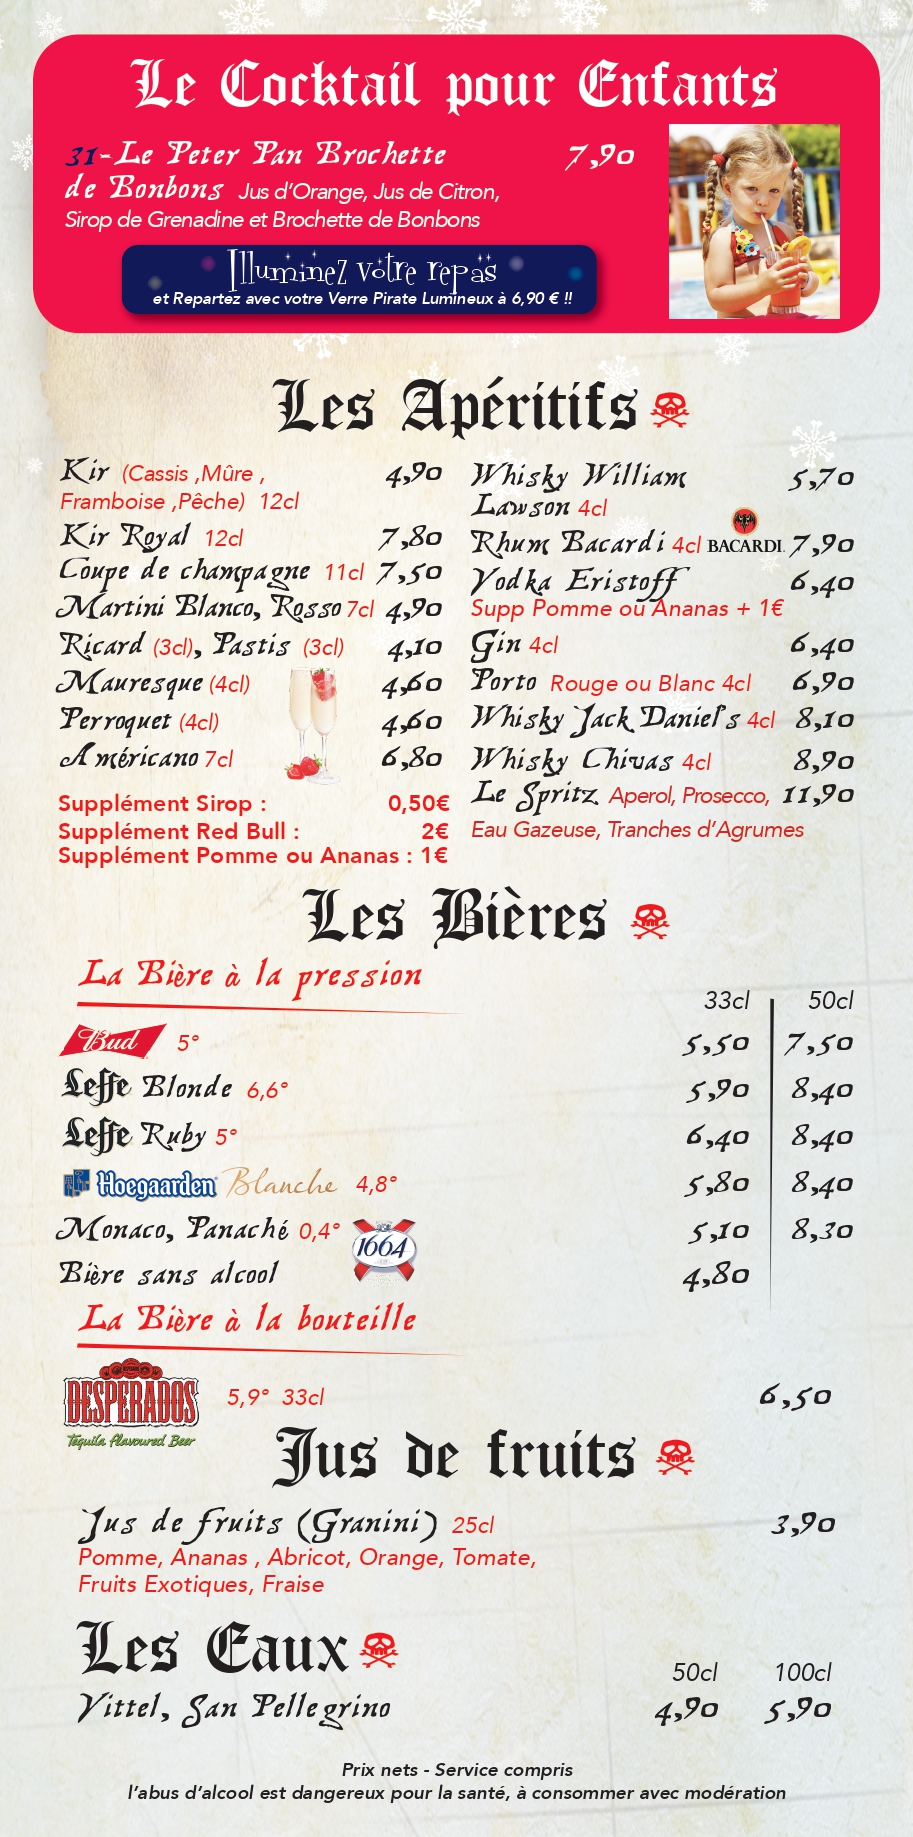 Le Cocktail pour Enfants
31-Le Peter Pan Brochette 7,90
de Bonbons Jus d'Orange, Jus de Citron,
Sirop de Grenadine et Brochette de Bonbons
Illuminez votre repas
et Repartez avec votre Verre Pirate Lumineux à 6,90 € !!
Les Apéritifs
Kir (Cassis ,Mûre , 4,90
Framboise ,Pêche) 12cl
Kir Royal 12cl 7,80
Coupe de champagne 11cl 7,50
Martini Blanco, Rosso 7cl 4,90
Ricard (3cl), Pastis (3cl) 4,10
Mauresque (4cl) 4,60
Perroquet (4cl) 4,60
Américano 7cl 6,80
Supplément Sirop : 0,50€
Supplément Red Bull : 2€
Supplément Pomme ou Ananas : 1€
Whisky William 5,70
Lawson 4cl
Rhum Bacardi 4cl BACARDI. 7,90
Vodka Eristoff 6,40
Supp Pomme ou Ananas + 1€
Gin 4cl 6,40
Porto Rouge ou Blanc 4cl 6,90
Whisky Jack Daniel's 4cl 8,10
Whisky Chivas 4cl 8,90
Le Spritz Aperol, Prosecco, 11,90
Eau Gazeuse, Tranches d'Agrumes
Les Bières
La Bière à la pression
33cl 50cl
Bud 5° 5,50 7,50
Leffe Blonde 6,6° 5,90 8,40
Leffe Ruby 5° 6,40 8,40
Hoegaarden Blanche 4,8° 5,80 8,40
Monaco, Panaché 0,4° 5,10 8,30
1664
Bière sans alcool 4,80
La Bière à la bouteille
DESPERADOS 5,9° 33cl 6,50
Tequila Flavoured Beer
Jus de fruits
Jus de fruits (Granini) 25cl 3,90
Pomme, Ananas , Abricot, Orange, Tomate,
Fruits Exotiques, Fraise
Les Eaux
50cl 100cl
Vittel, San Pellegrino 4,90 5,90
Prix nets - Service compris
l'abus d'alcool est dangereux pour la santé, à consommer avec modération